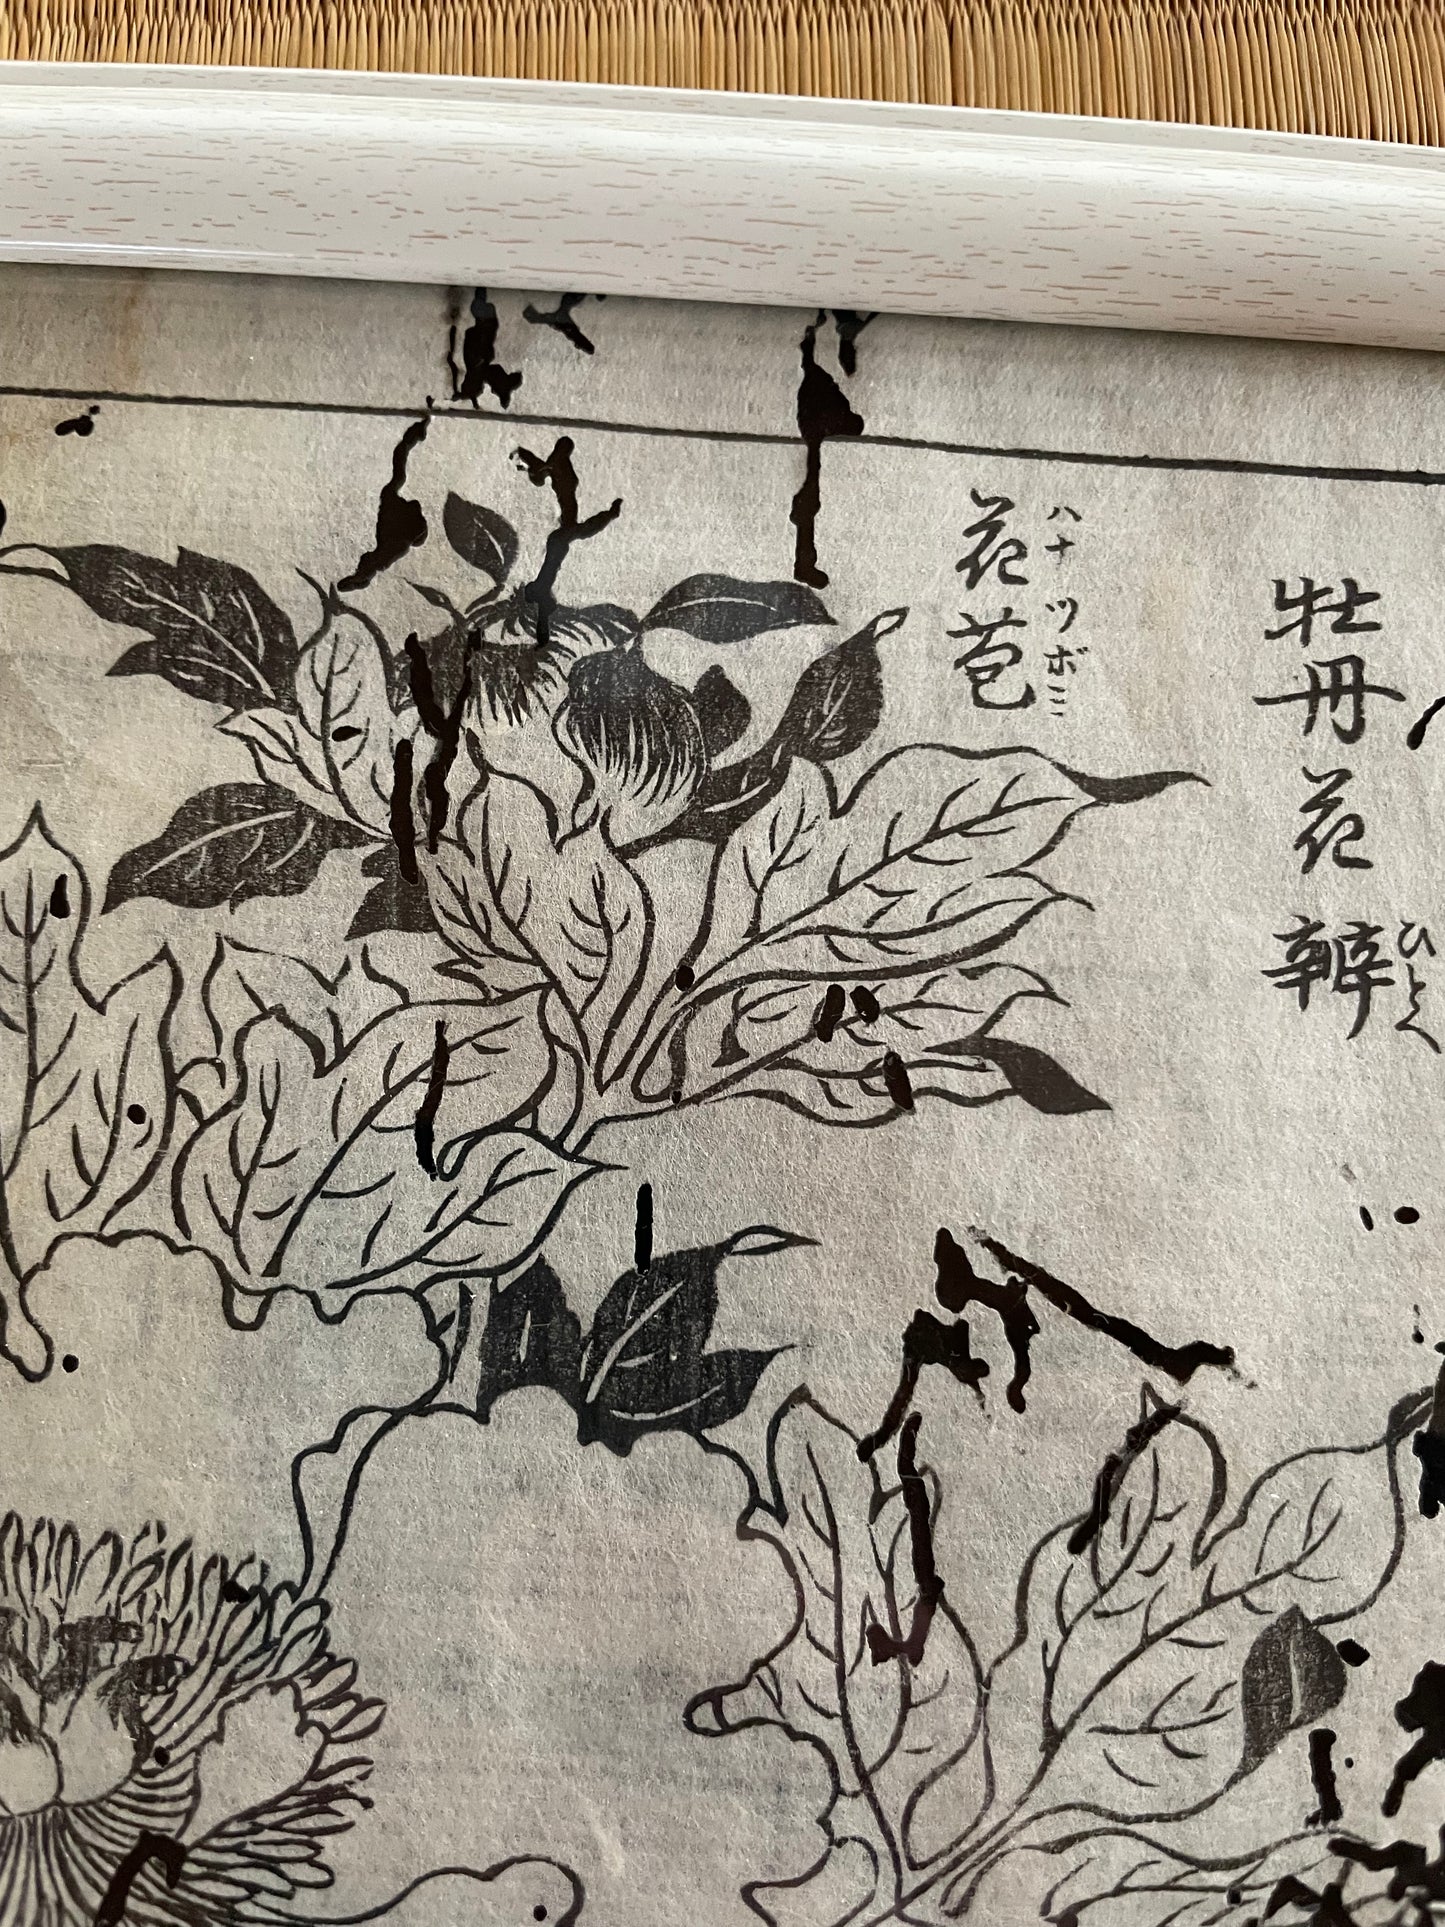 牡丹花瓣
ひとへ
花苞
ハナツボミ